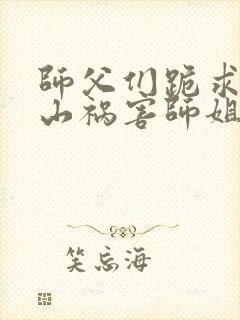 師父们跪求
山祸害師姐
笑忘海